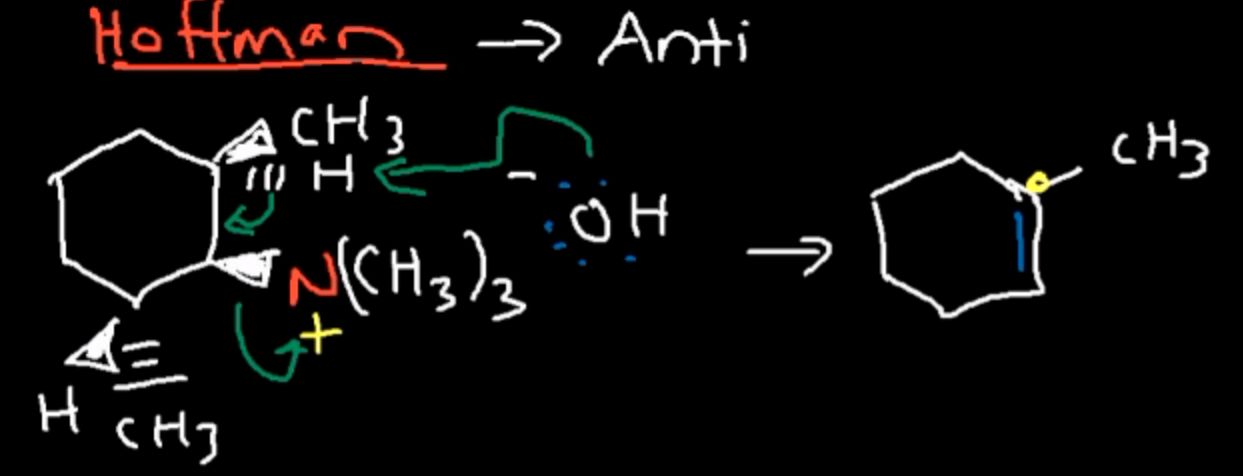 Hoffman → Anti
CH3
H
- OH
N(CH3)3
+
H CH3
→
CH3